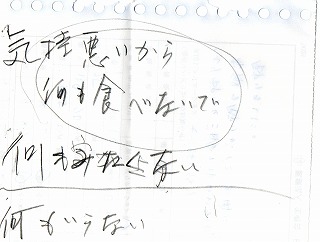 気持悪いから
何も食べないで
何も
何もいらない